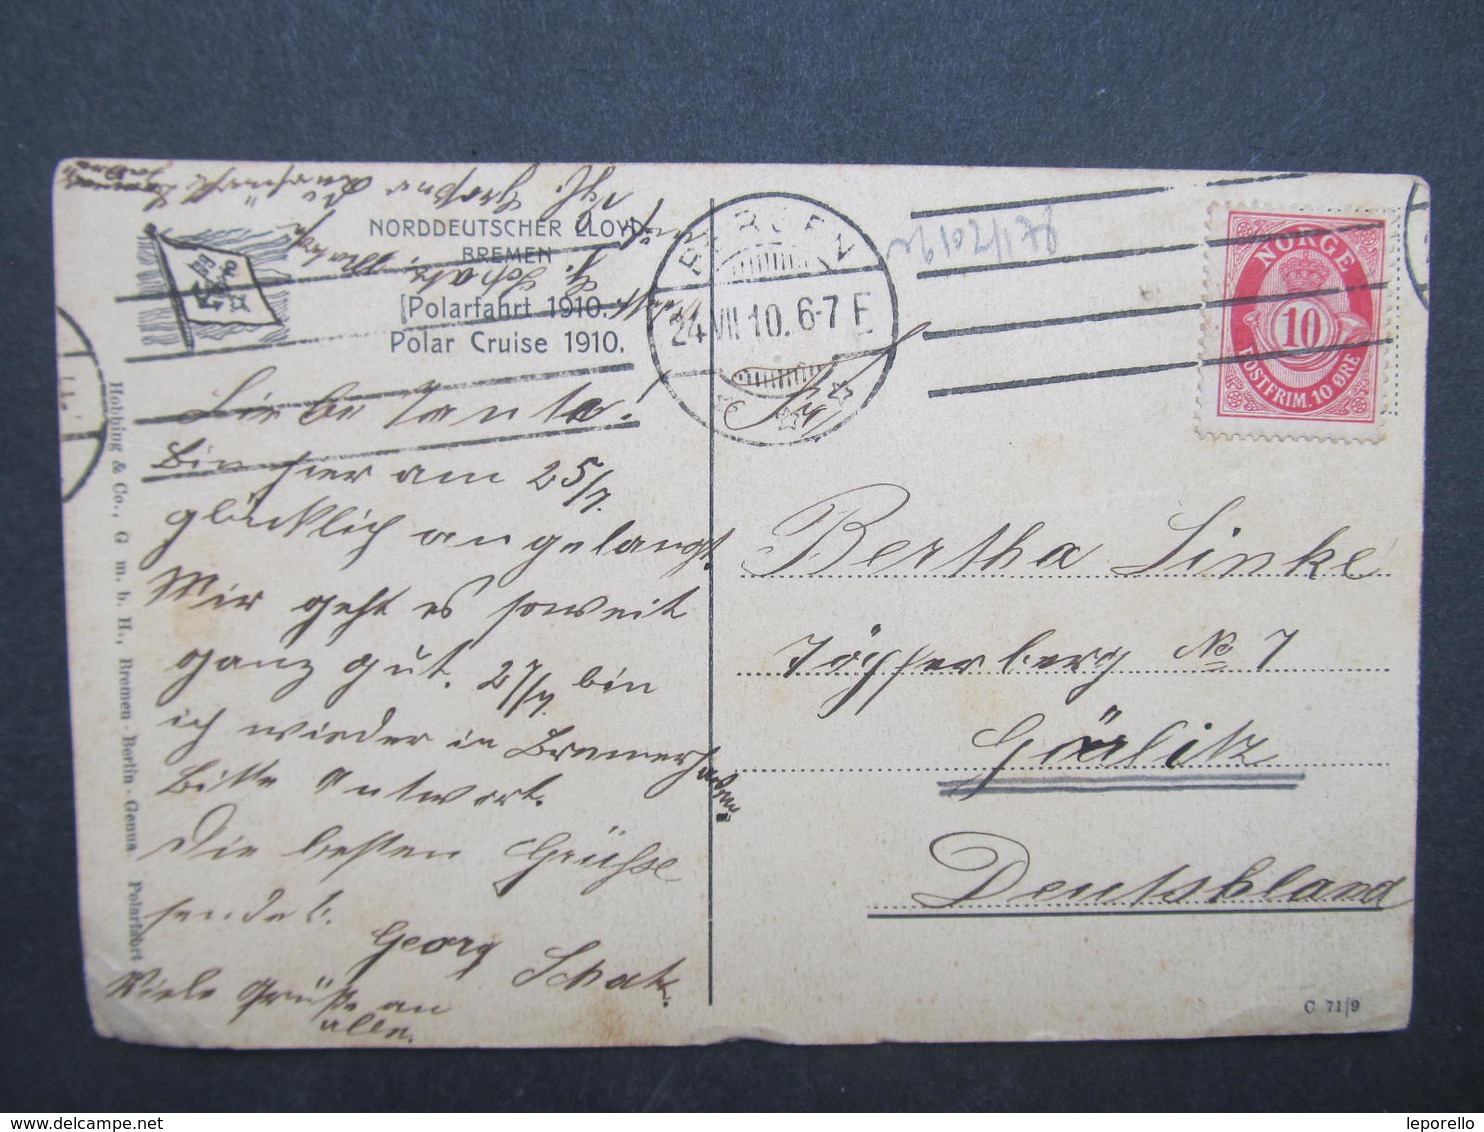 NORDDEUTSCHER LLOYD
BREMEN
Polarfahrt 1910.
Polar Cruise 1910.
BERGEN
24 VII 10. 6-7 E
NORGE
10
POSTFRIM. 10 ØRE
Liebe Tante!
Bin hier am 25/7.
glücklich angelangt.
Mir geht es soweit
ganz gut. 27/7. bin
ich wieder in Bremerhaven.
Bitte Antwort.
Die besten Grüße
sendet.
Georg Schatz.
Viele Grüße an
allen.
Bertha Linke
Töpferberg № 7
Görlitz
Deutschland
Hobbing & Co., G. m. b. H., Bremen - Berlin - Genua. Polarfahrt
C 71/9
delcampe.net
leporello